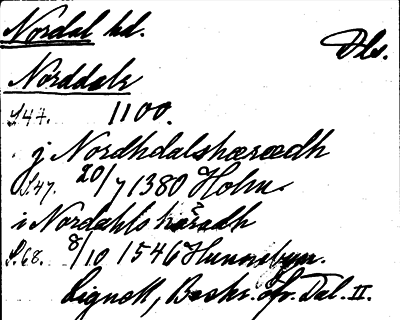 Nordal hd.
Dls.
Norddals
S47. 1100.
j Nordhdalshæræedh
S47. 20/7 1380 Holm.
i Nordahls häradh
S.68. 8/10 1546 Hunnebyn.
Lignell, Beskr. Gr. Dal. II.